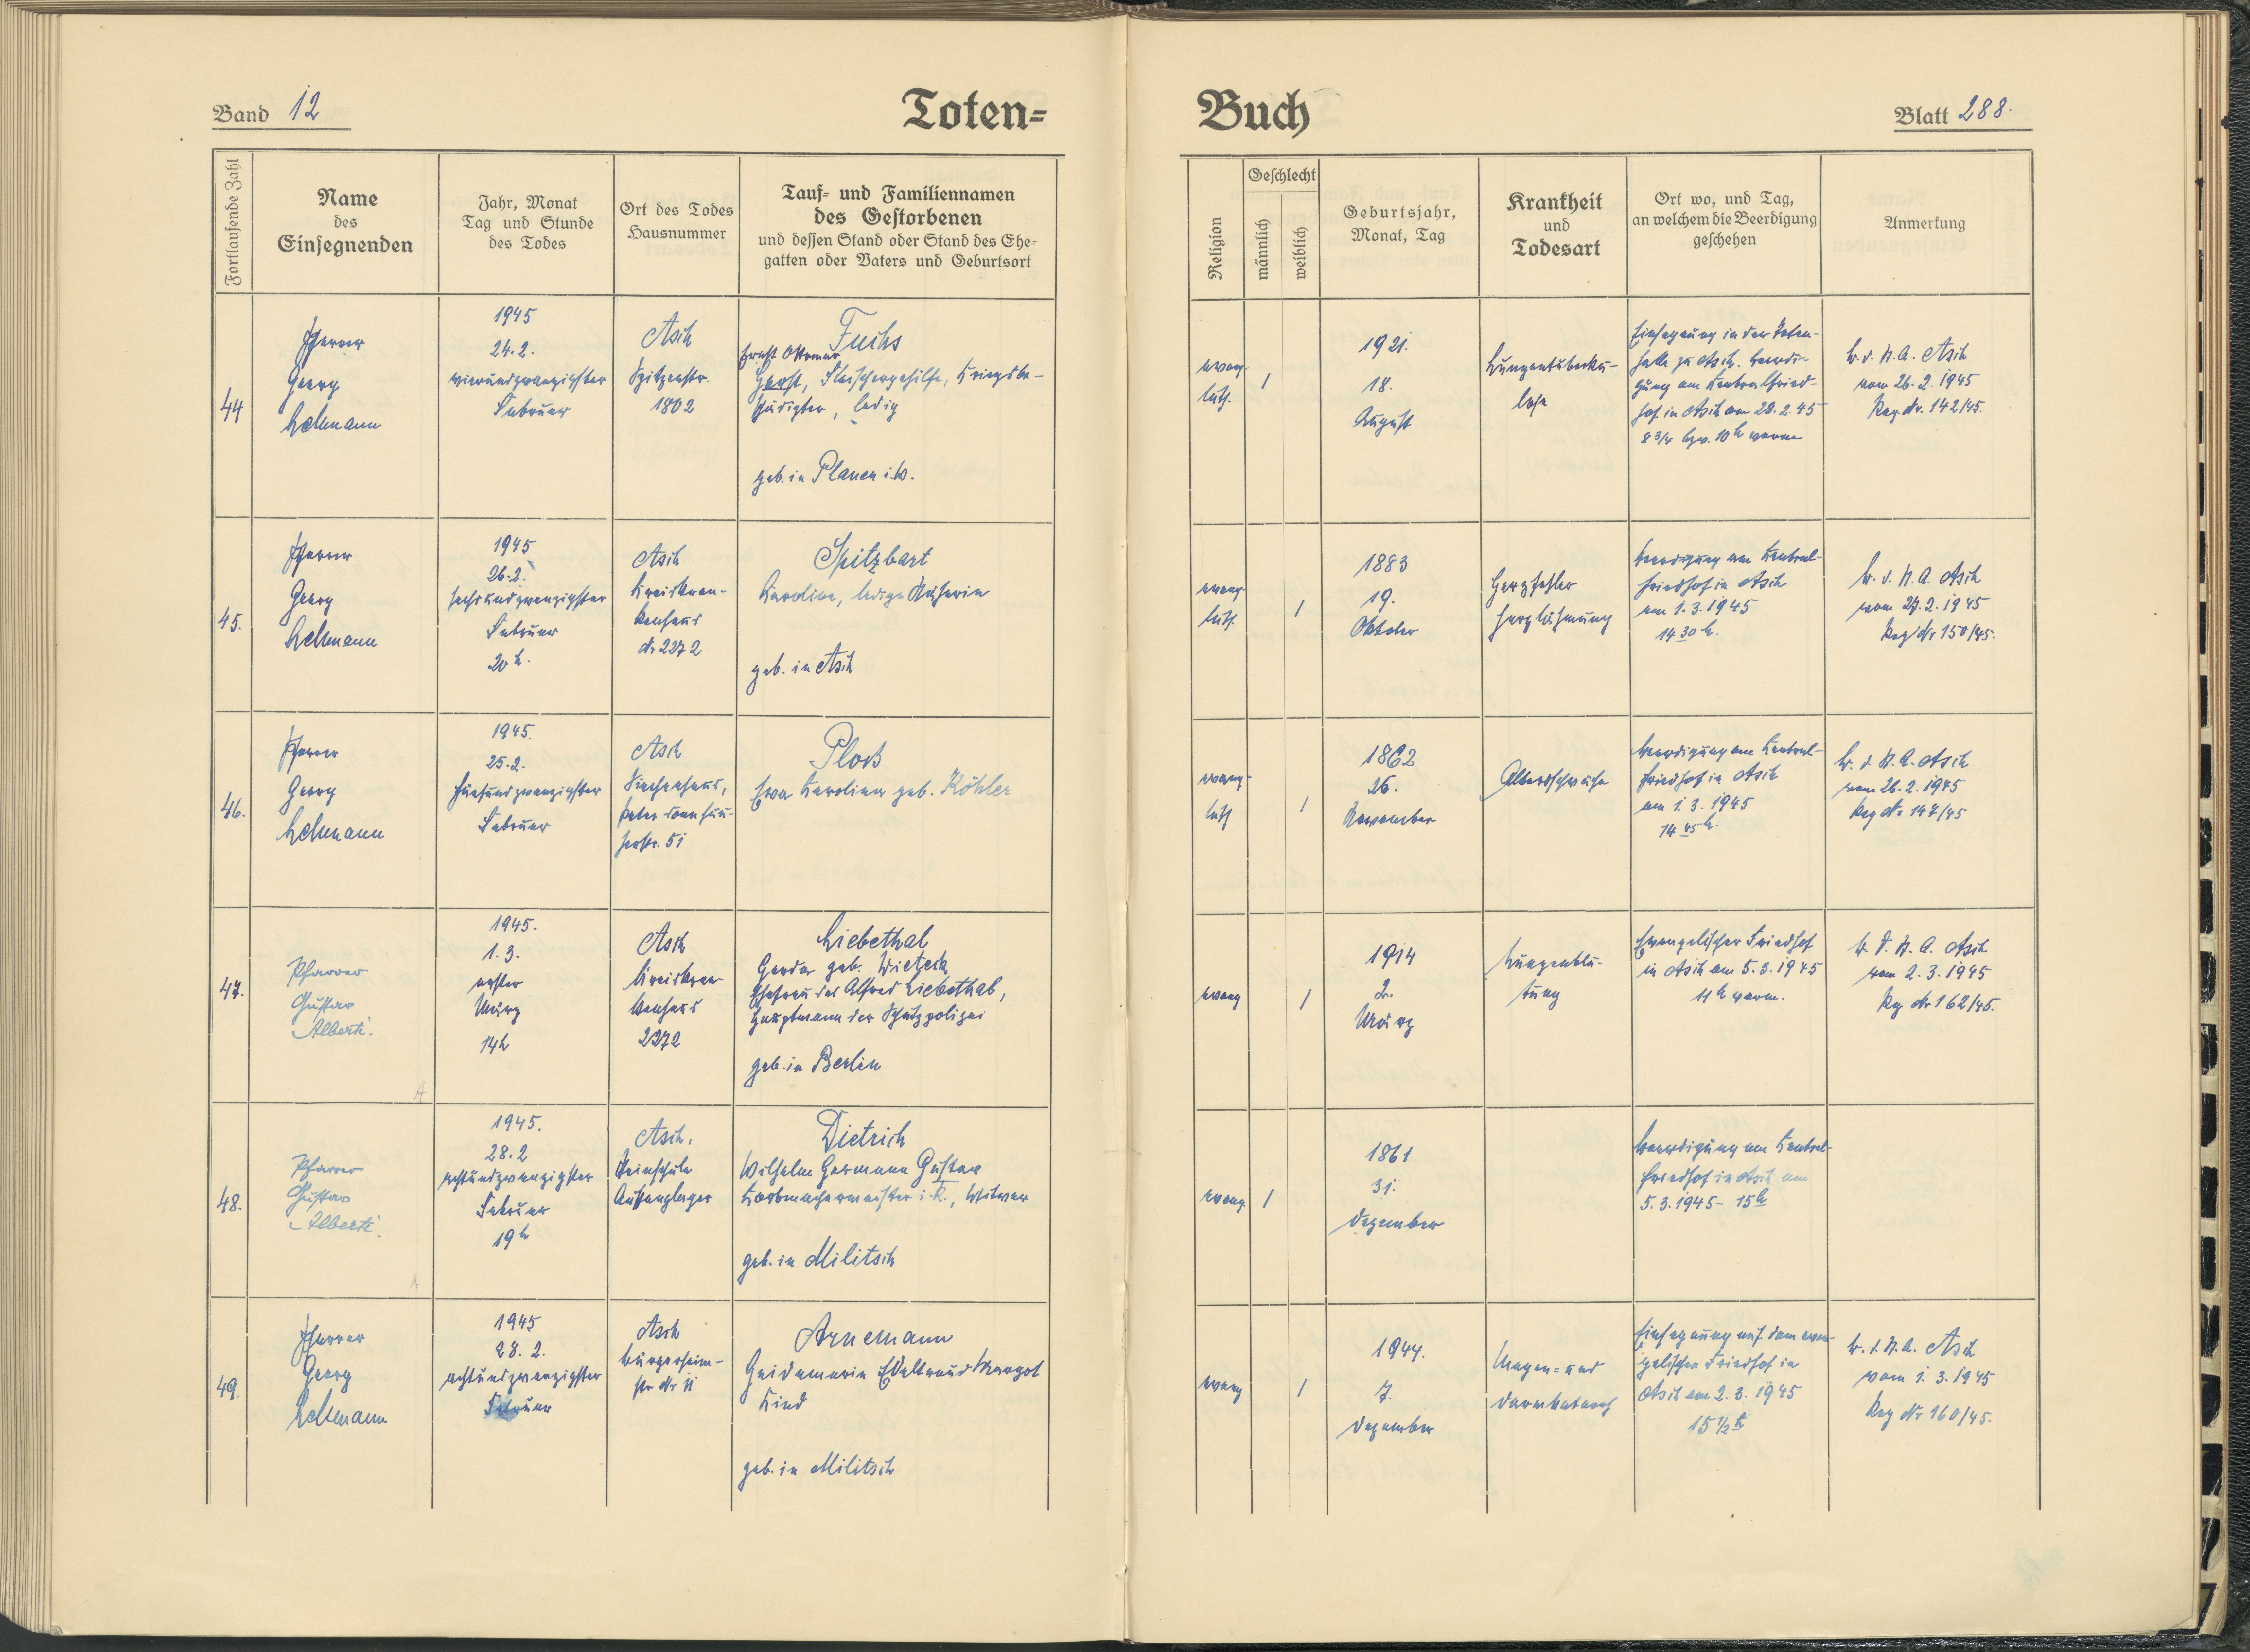 Band 12
Toten=
Fortlaufende Zahl
Name
des
Einsegnenden
Jahr, Monat
Tag und Stunde
des Todes
Ort des Todes
Hausnummer
Tauf= und Familiennamen
des Gestorbenen
und dessen Stand oder Stand des Ehe=
gatten oder Vaters und Geburtsort
44
Pfarrer
Georg
Lehmann
1945
24. 2.
vierundzwanzigster
Februar
Asch
Spitzenstr.
1802
Fuchs
Ernst Ottomar
Horst, Fleischergehilfe, Kriegsbe-
schädigter, ledig
geb. in Plauen i. V.
45.
Pfarrer
Georg
Lehmann
1945
26. 2.
sechsundzwanzigster
Februar
20 h.
Asch
Kreiskran-
kenhaus
Nr 2272
Spitzbart
Karoline, ledige Näherin
geb. in Asch
46.
Pfarrer
Georg
Lehmann
1945.
25. 2.
fünfundzwanzigster
Februar
Asch
Siechenhaus,
Peter
str. 51
Ploß
Eva Karolina geb. Köhler
47.
Pfarrer
Gustav
Alberti.
1945.
1. 3.
erster
März
14 h
Asch
Kreiskran-
kenhaus
2272
Liebethal
Gerda geb. Wietzeck
Ehefrau des Alfred Liebethal,
Hauptmann der Schutzpolizei
geb. in Berlin
48.
Pfarrer
Gustav
Alberti.
1945.
28. 2
achtundzwanzigster
Februar
19 h
Asch,
Steinschule
Auffanglager
Dietrich
Wilhelm Hermann Gustav
Korbmachermeister i. R., Witwer
geb. in Militsch
49.
Pfarrer
Georg
Lehmann
1945
28. 2.
achtundzwanzigster
Februar
Asch
Bürgerheim-
str Nr 11
Arnemann
Heidemarie Edeltraud Margot
Kind
geb. in Militsch
Buch
Blatt 288.
Religion
Geschlecht
männlich
weiblich
Geburtsjahr,
Monat, Tag
Krankheit
und
Todesart
Ort wo, und Tag,
an welchem die Beerdigung
geschehen
Anmerkung
evang.
luth.
1
1921.
18.
August
Lungentuberku-
lose
Einsegnung in der Toten-
halle zu Asch. Beerdi-
gung am Zentralfried-
hof in Asch am 28. 2. 45
8 3/4 bzw. 10 h vorm
B. d. St. A. Asch
vom 26. 2. 1945
Reg. Nr. 142/45.
evang.
luth.
1
1883
19.
Oktober
Herzfehler
Herzlähmung
Beerdigung am Zentral-
friedhof in Asch
am 1. 3. 1945
14 30 h.
B. d. St. A. Asch
vom 27. 2. 1945
Reg Nr 150/45.
evang-
luth
1
1862
26.
November
Altersschwäche
Beerdigung am Zentral-
friedhof in Asch
am 1. 3. 1945
14 45 h.
B. d. St. A. Asch
vom 26. 2. 1945
Reg Nr 147/45
evang
1
1914
2.
März
Lungenblu-
tung
Evangelischer Friedhof
in Asch am 5. 3. 1945
11 h vorm.
B. d. St. A. Asch
vom 2. 3. 1945
Reg Nr 162/45.
evang.
1
1861
31.
Dezember
Beerdigung am Zentral-
friedhof in Asch am
5. 3. 1945 - 15 h
evang
1
1944.
7.
Dezember
Magen- und
Darmkatarrh
Einsegnung auf dem evan-
gelischen Friedhof in
Asch am 2. 3. 1945
15 1/2 h
B. d. St. A. Asch
vom 1. 3. 1945
Reg Nr 160/45.